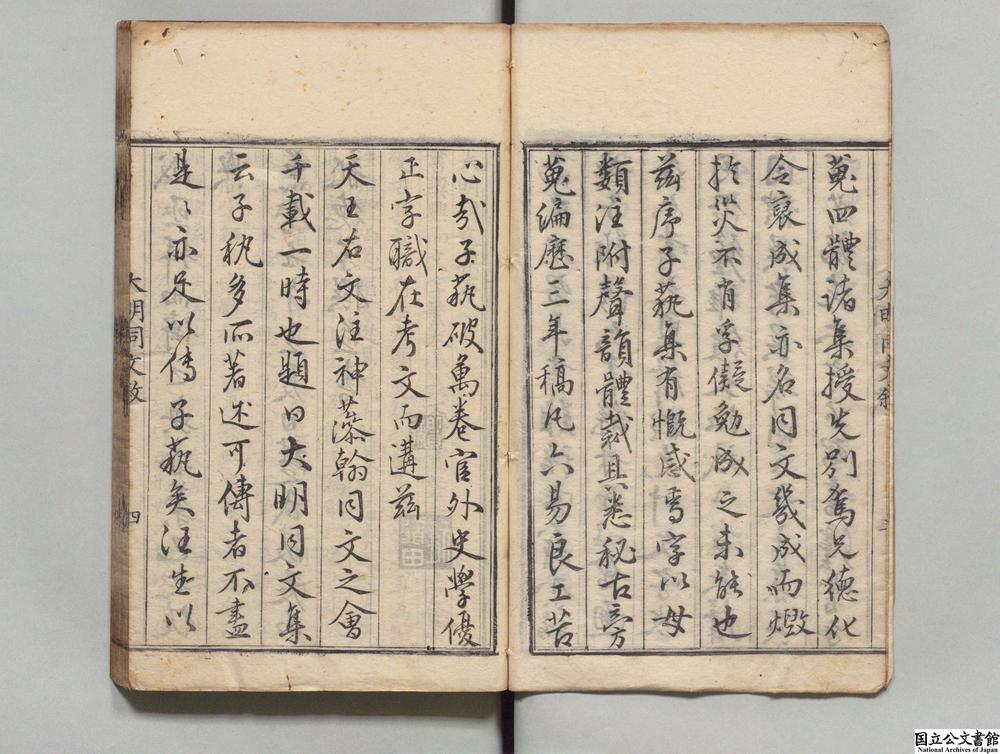 蒐四體諸集授先别駕兄德化
令裒成集亦名同文幾成而燬
於災不肖孚儗勉成之未能也
兹序子蓺集有慨感焉字以母
類注附聲韻體裁具悉秘古旁
蒐編歷三年稿凡六易良工苦
心哉子蓺破萬卷官外史學優
正字職在考文而遘兹
天王右文注神藻翰同文之會
千載一時也題曰大明同文集
云子蓺多所著述可傳者不盡
是〻亦足以傳子蓺矣汪生以
大明同文敘
四
国立公文書館
National Archives of Japan